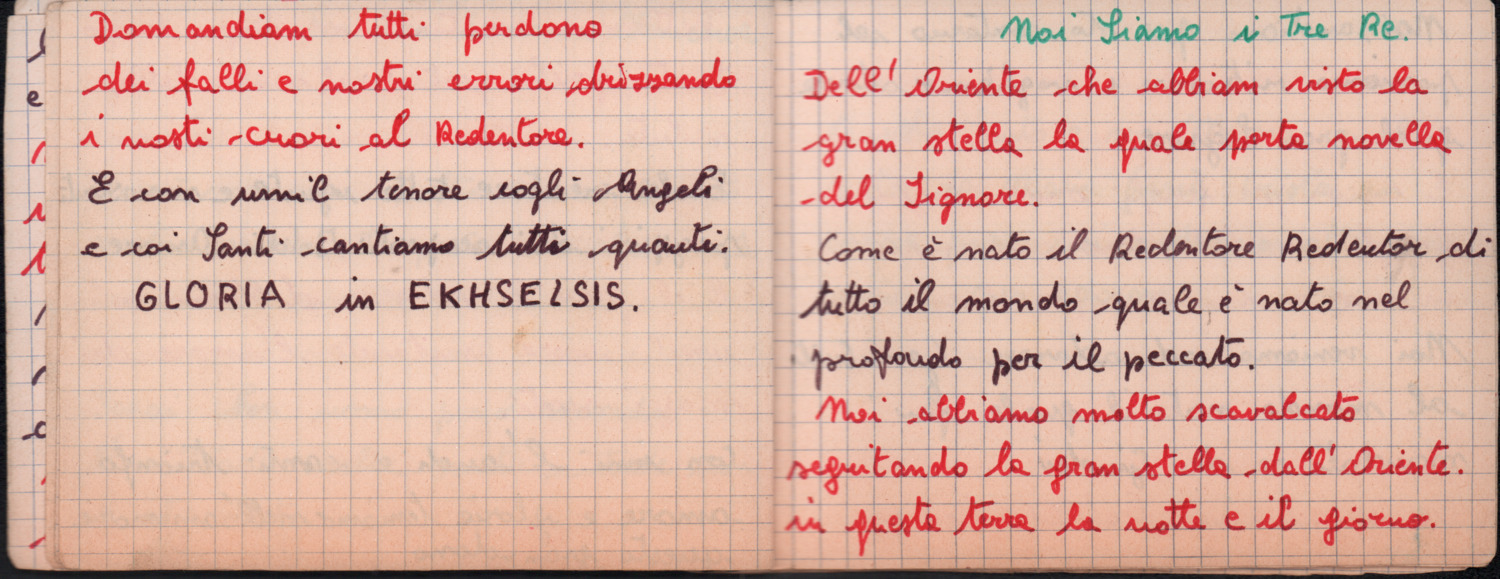 Domandiam tutti perdono
dei falli e nostri errori drizzando
i nosti cuori al Redentore.
E con umil tenore cogli Angeli
e coi Santi cantiamo tutti quanti.
GLORIA in EKHSELSIS.
Noi Siamo i Tre Re.
Dell' Oriente che abbiam visto la
gran stella la quale porta novella
del Signore.
Come è nato il Redentore Redentor di
tutto il mondo quale è nato nel
profondo per il peccato.
Noi abbiamo molto scavalcato
seguitando la gran stella dall' Oriente.
in questa terra la notte e il giorno.